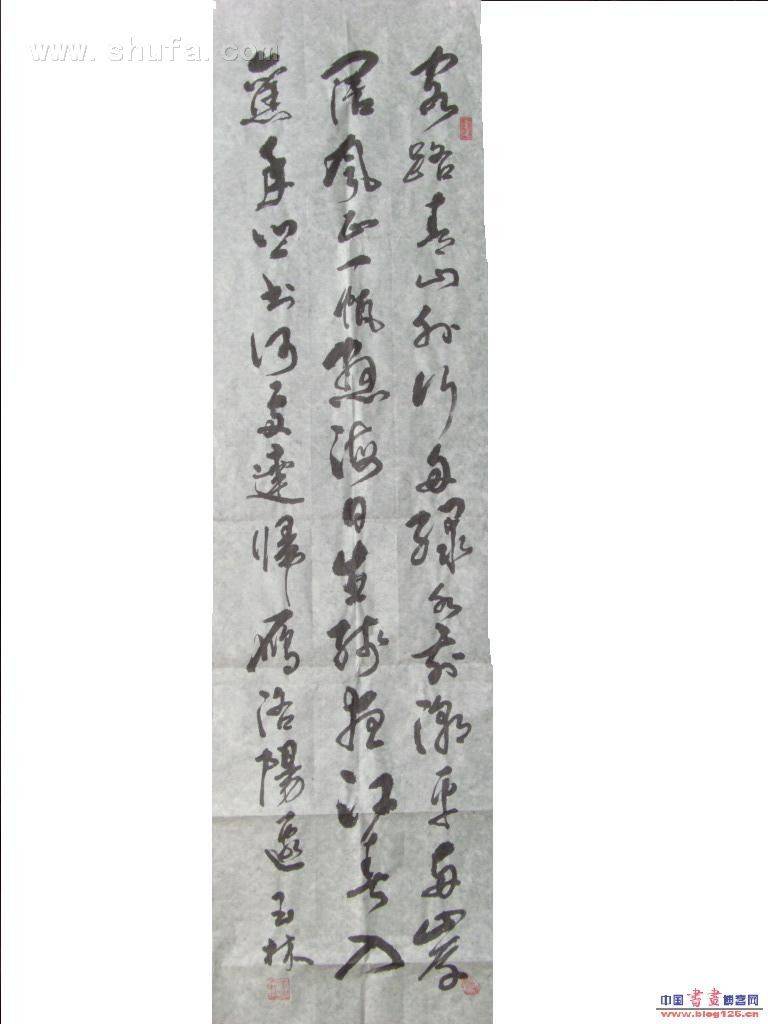 www.shufa.com
客路青山外行舟綠水前潮平兩岸
闊風正一帆懸海日生殘夜江春入
舊年鄉書何處達歸雁洛陽邊 玉林
中国書畫博客网
www.blog126.cn